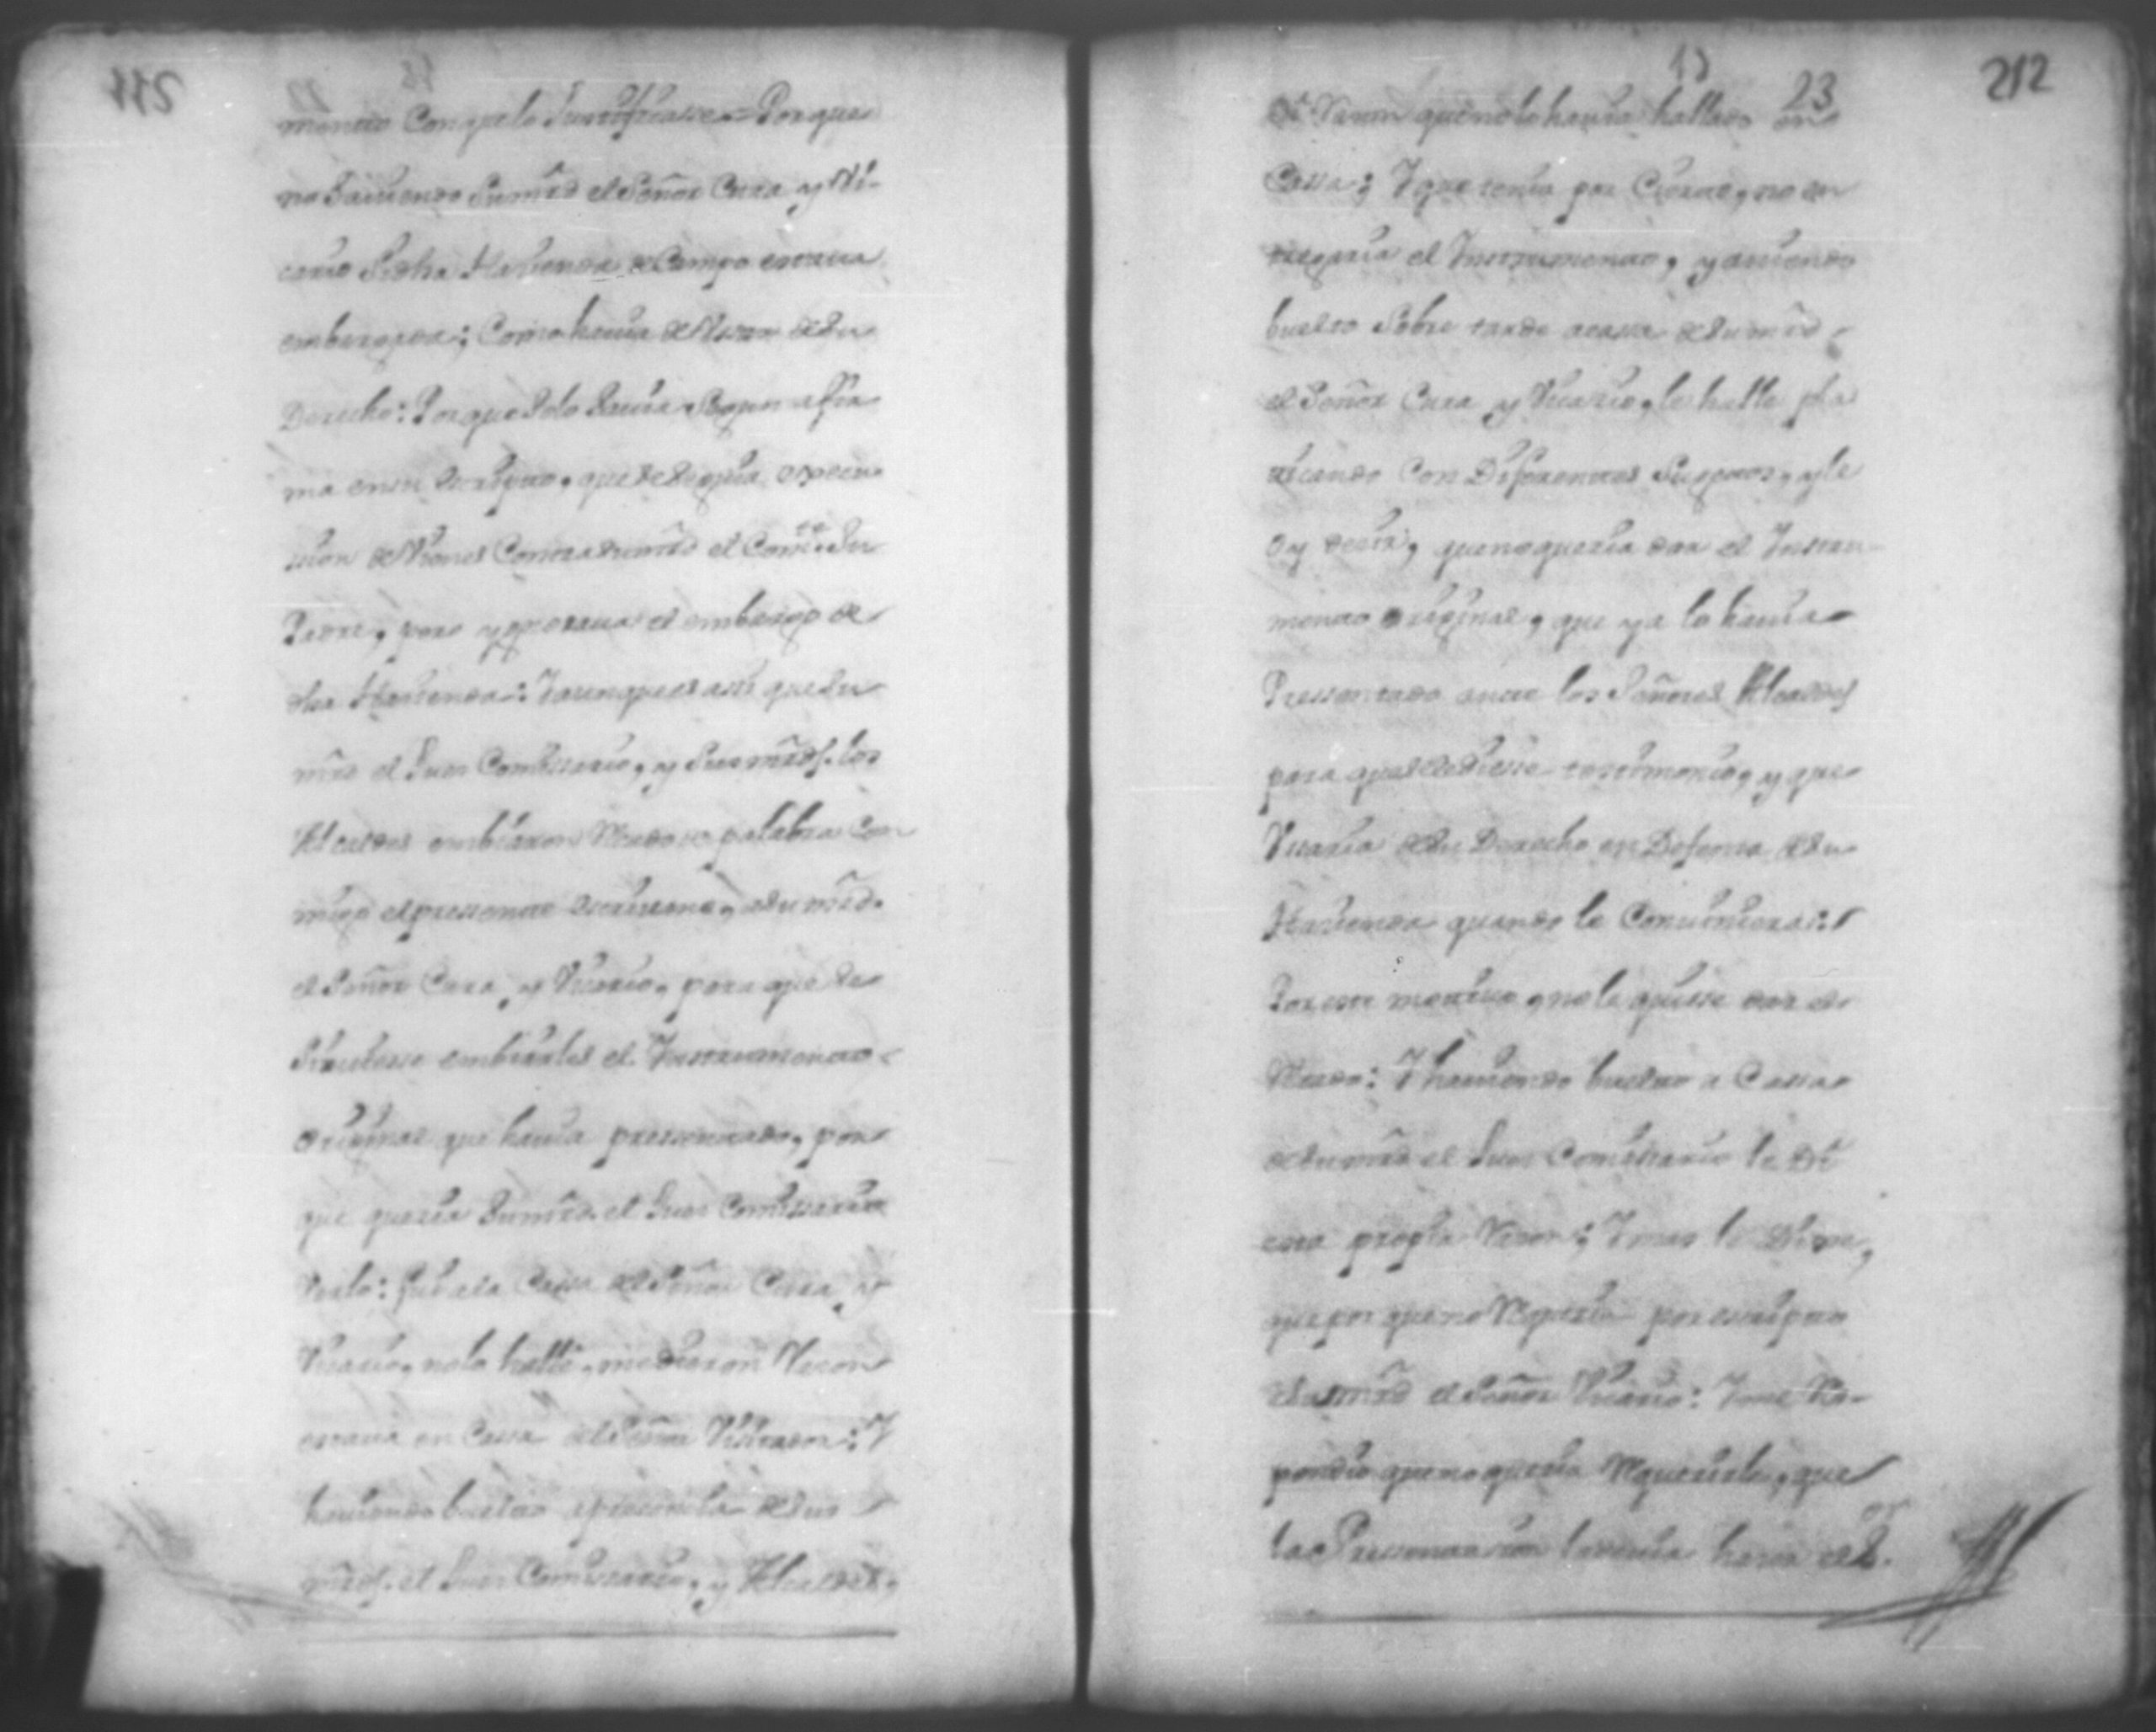 mento Con que lo Justificasse = Porque
no Saviendo Su mrd el Señor Cura y Vi-
cario Si dha Hacienda de Campo estava
embargada; Como havia de Usar de Su
Derecho: Porque Solo Savia Segun afir
ma en su escripto, que se Seguia execu
cion de Vienes Contra Su mrd el Comte Su
Padre, pero ygnorava el embargo de
dha Hacienda: Y aunque es assi que Su
mrd el Juez Comissario, y Sus mrds los
Alcaldes embiaron Recado palabra Con
migo el pressente Escrivano, a Su mrd
el Señor Cura, y Vicario, para que se
Sirviesse embiarles el Instrumento
Original que havia pressentado, por
que queria Su mrd el Juez Comissario
Verlo: fui a la Cassa del Señor Cura, y
Vicario, no lo hallé, me dieron Razon
estava en Cassa del Señor Visitador: Y
haviendo buelto a presencia de Sus
mrds el Juez Comissario, y Alcaldes,
212
23
di Razon que no lo havia hallado en
Cassa; Y que tenia por Cierto, no en
tregaria el Instrumento, y aviendo
buelto Sobre tarde a cassa de Su mrd
el Señor Cura y Vicario, le halle pla
ticando Con Diferentes Sugetos, y le
Oy decir, que no queria dar el Instru
mento Original, que ya lo havia
Pressentado ante los Señores Alcaldes
para que se le diesse testimonio, y que
Vsaria de Su Derecho en Defensa de Su
Hacienda quando le Conviniera:
Por este motivo, no le quisse dar el
Recado: Y haviendo buelto a Cassa
de Su mrd el Juez Comissario le Di
esta propia Razon; Y mas le Dixe,
que por que no Requeria por escripto
a Su mrd el Señor Vicario: Y me Res-
pondio que no queria Requerirle, que
la Pressentacion havia